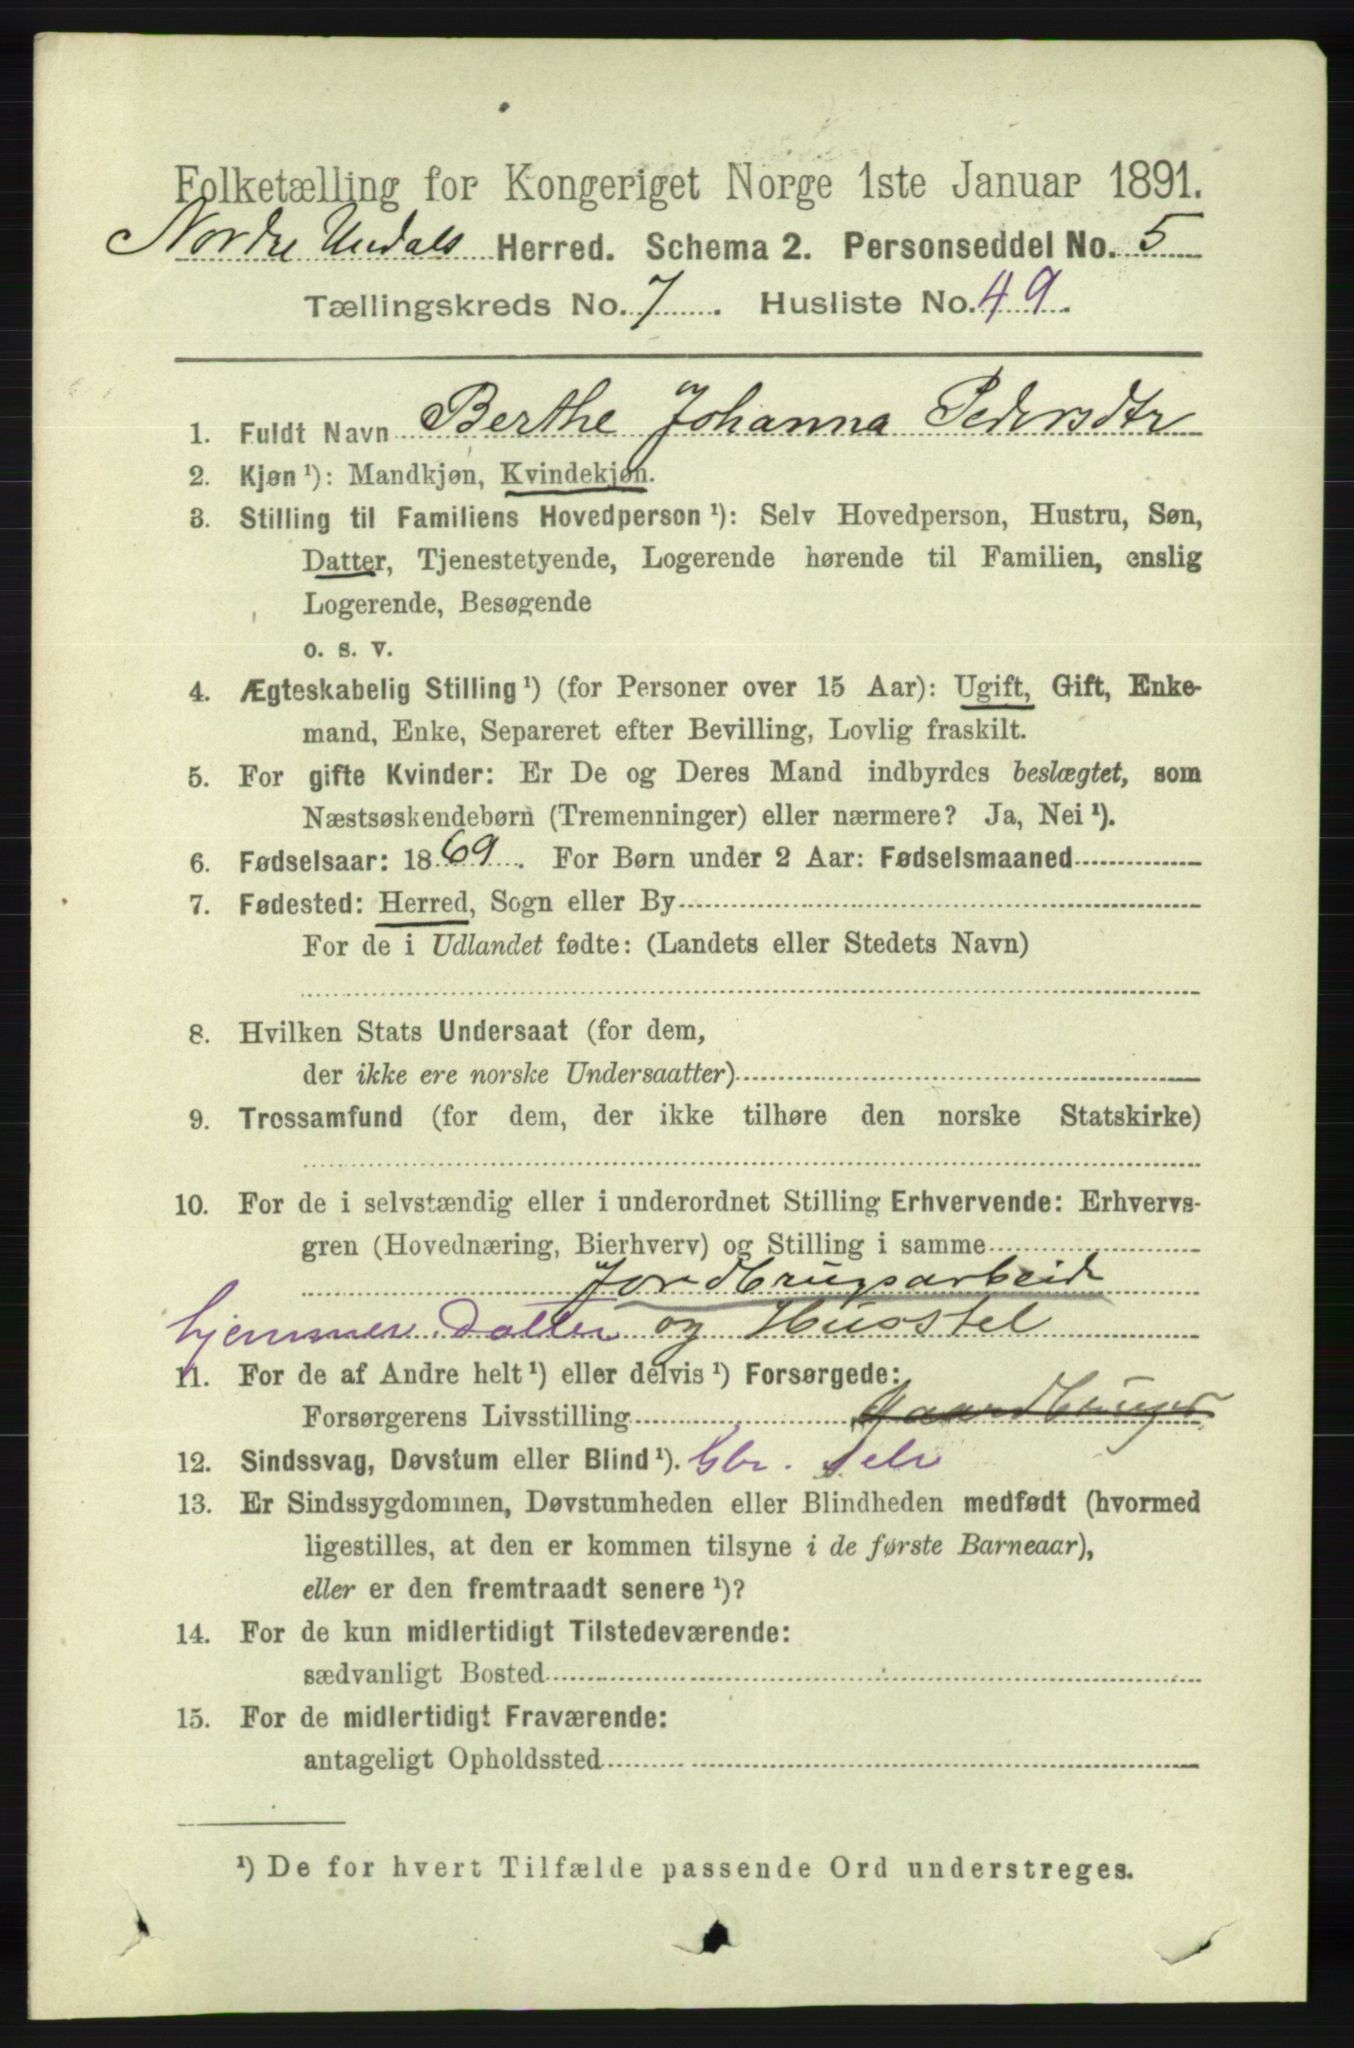 Folketælling for Kongeriget Norge 1ste Januar 1891.
Nordre Undals Herred. Schema 2. Personseddel No. 5
Tællingskreds No. 7. Husliste No. 49.
1. Fuldt Navn Berthe Johanna Pedersdtr
2. Kjøn ¹): Mandkjøn, Kvindekjøn.
3. Stilling til Familiens Hovedperson ¹): Selv Hovedperson, Hustru, Søn,
Datter, Tjenestetyende, Logerende hørende til Familien, enslig
Logerende, Besøgende
o. s. v.
4. Ægteskabelig Stilling ¹) (for Personer over 15 Aar): Ugift, Gift, Enke-
mand, Enke, Separeret efter Bevilling, Lovlig fraskilt.
5. For gifte Kvinder: Er De og Deres Mand indbyrdes beslægtet, som
Næstsøskendebørn (Tremenninger) eller nærmere? Ja, Nei ¹).
6. Fødselsaar: 1869. For Børn under 2 Aar: Fødselsmaaned
7. Fødested: Herred, Sogn eller By
For de i Udlandet fødte: (Landets eller Stedets Navn)
8. Hvilken Stats Undersaat (for dem,
der ikke ere norske Undersaatter)
9. Trossamfund (for dem, der ikke tilhøre den norske Statskirke)
10. For de i selvstændig eller i underordnet Stilling Erhvervende: Erhvervs-
gren (Hovednæring, Bierhverv) og Stilling i samme
Jordbrugsarbeide
hjemmev. Datter og Husstel
11. For de af Andre helt ¹) eller delvis ¹) Forsørgede:
Forsørgerens Livsstilling Gaardbruger
12. Sindssvag, Døvstum eller Blind ¹). Gbr. Selv
13. Er Sindssygdommen, Døvstumheden eller Blindheden medfødt (hvormed
ligestilles, at den er kommen tilsyne i de første Barneaar),
eller er den fremtraadt senere ¹)?
14. For de kun midlertidigt Tilstedeværende:
sædvanligt Bosted
15. For de midlertidigt Fraværende:
antageligt Opholdssted
¹) De for hvert Tilfælde passende Ord understreges.